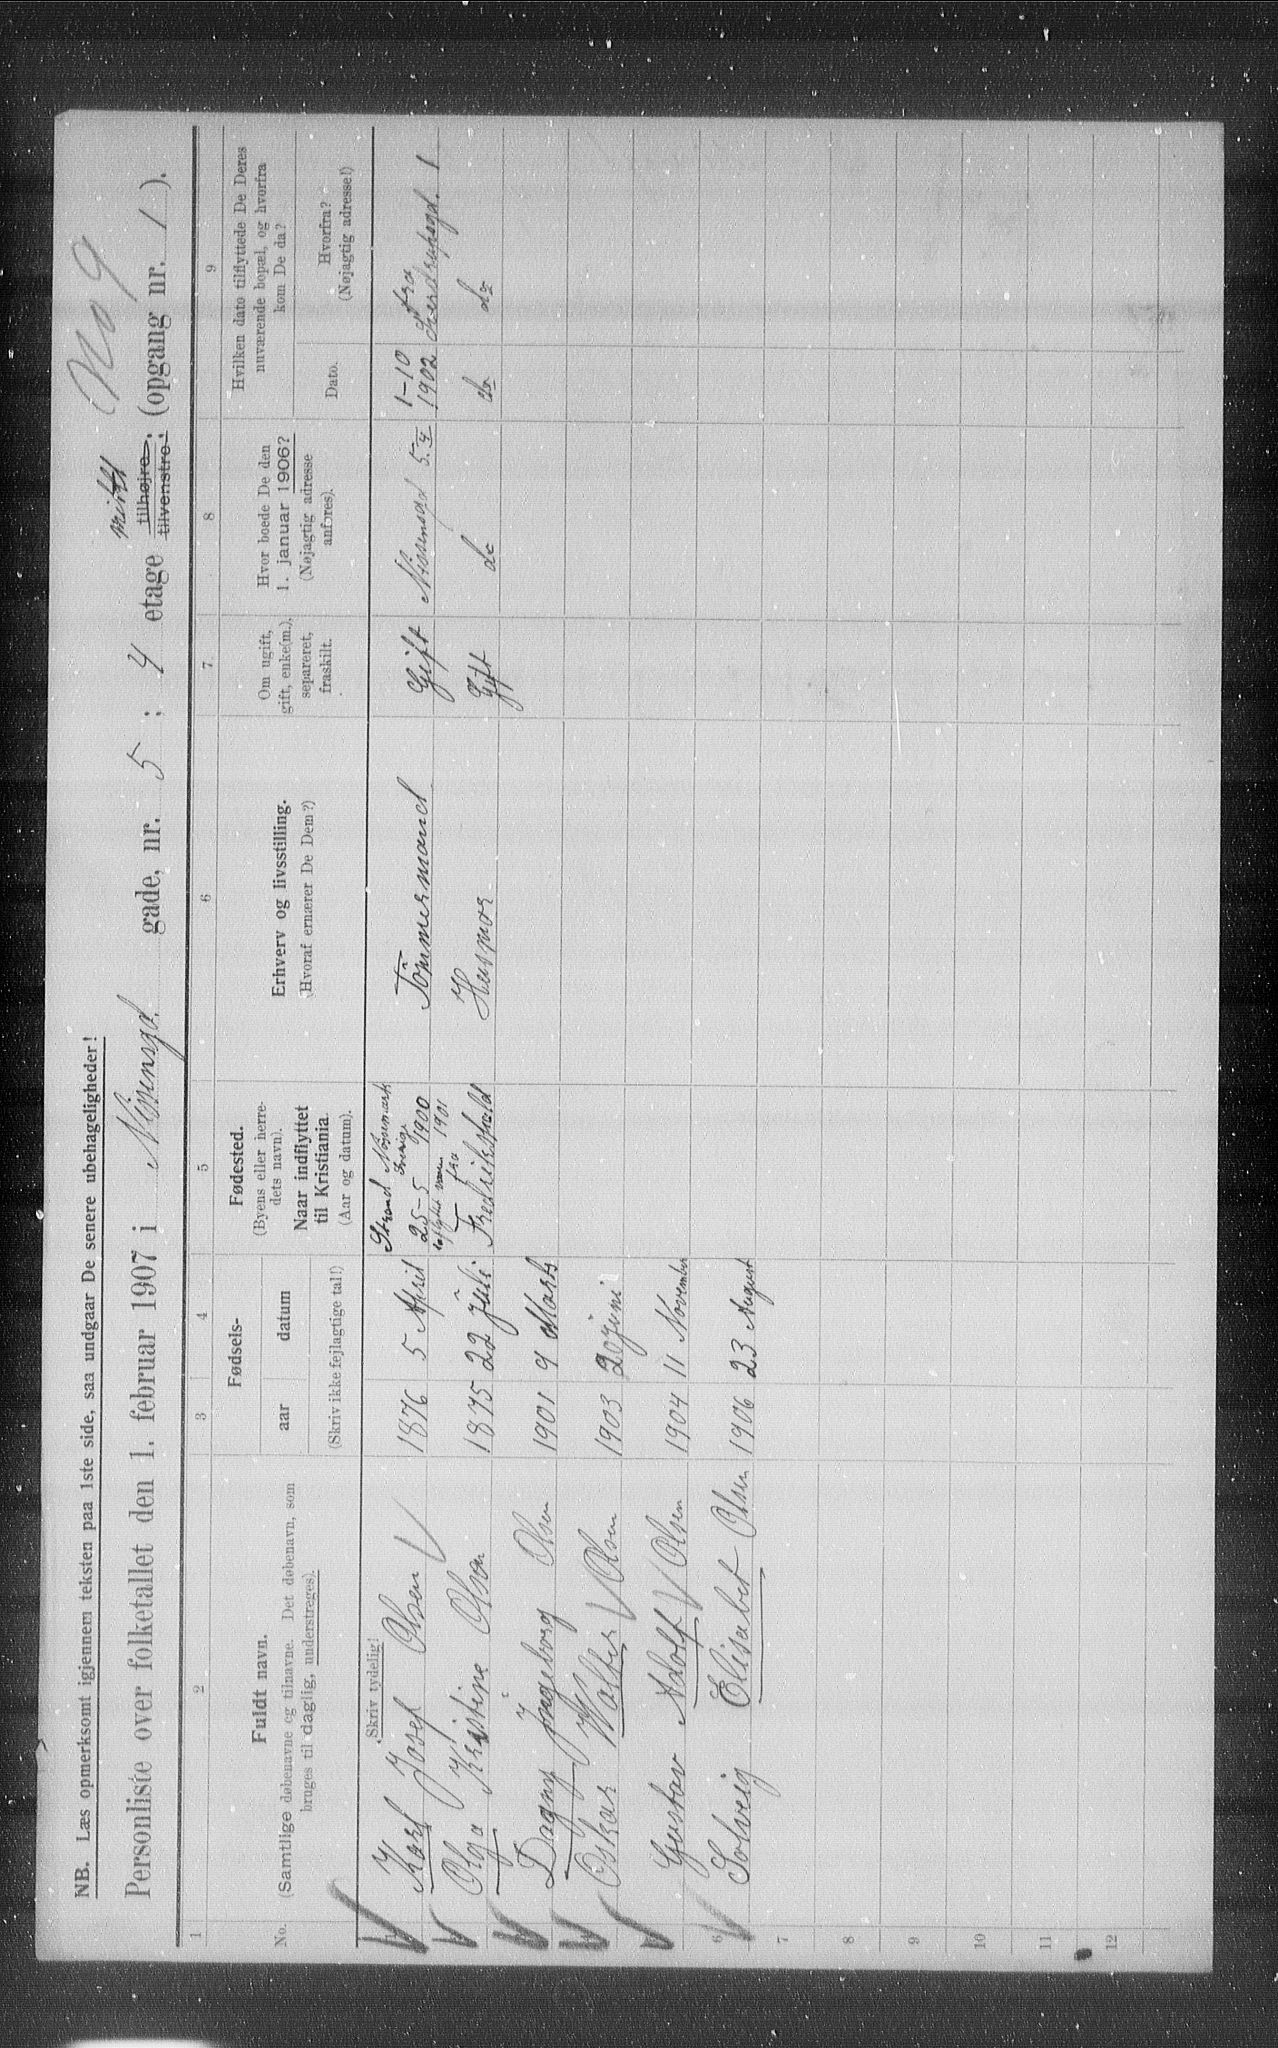 No 9
NB. Læs opmerksomt igjennem teksten paa 1ste side, saa undgaar De senere ubehageligheder!
mitts
Personliste over folketallet den 1. februar 1907 i Nissensgd. gade, nr. 5; 4 etage tilhøjre, tilvenstre, (opgang nr. 1).
1 2 3 4 5 6 7. 8 9
No.
Fuldt navn.
(Samtlige døbenavne og tilnavne. Det døbenavn, som
bruges til daglig, understreges).
Skriv tydelig!
Fødsels-
aar datum
(Skriv ikke fejlagtige tal!)
Fødested.
(Byens eller herre-
dets navn).
Naar indflyttet
til Kristiania.
(Aar og datum).
Erhverv og livsstilling.
(Hvoraf ernærer De Dem?)
Om ugift,
gift, enke(m.),
separeret,
fraskilt.
Hvor boede De den
1. januar 1906?
(Nøjagtig adresse
anføres).
Hvilken dato tilflyttede De Deres
nuværende bopæl, og hvorfra
kom De da?
Dato.
Hvorfra?
(Nøjagtig adresse!)
Karl Josef Olsen 1876 5 April Strand Nøssemark Sverige 25-5 1900 Tömmermand Gift Nissensgd 5.4 1-10 1902 fra Sverdrupsgd. 1
Olga Kristine Olsen 1875 22 Juli 1901 fra Fredrikshald Husmor Gift do do do
Dagny Ingeborg Olsen 1901 9 Marts
Oskar Walter Olsen 1903 20 juni
Gustav Adolf Olsen 1904 11 November
6 Solveig Elisabet Olsen 1906 23 August
7
8
9
10
11
12